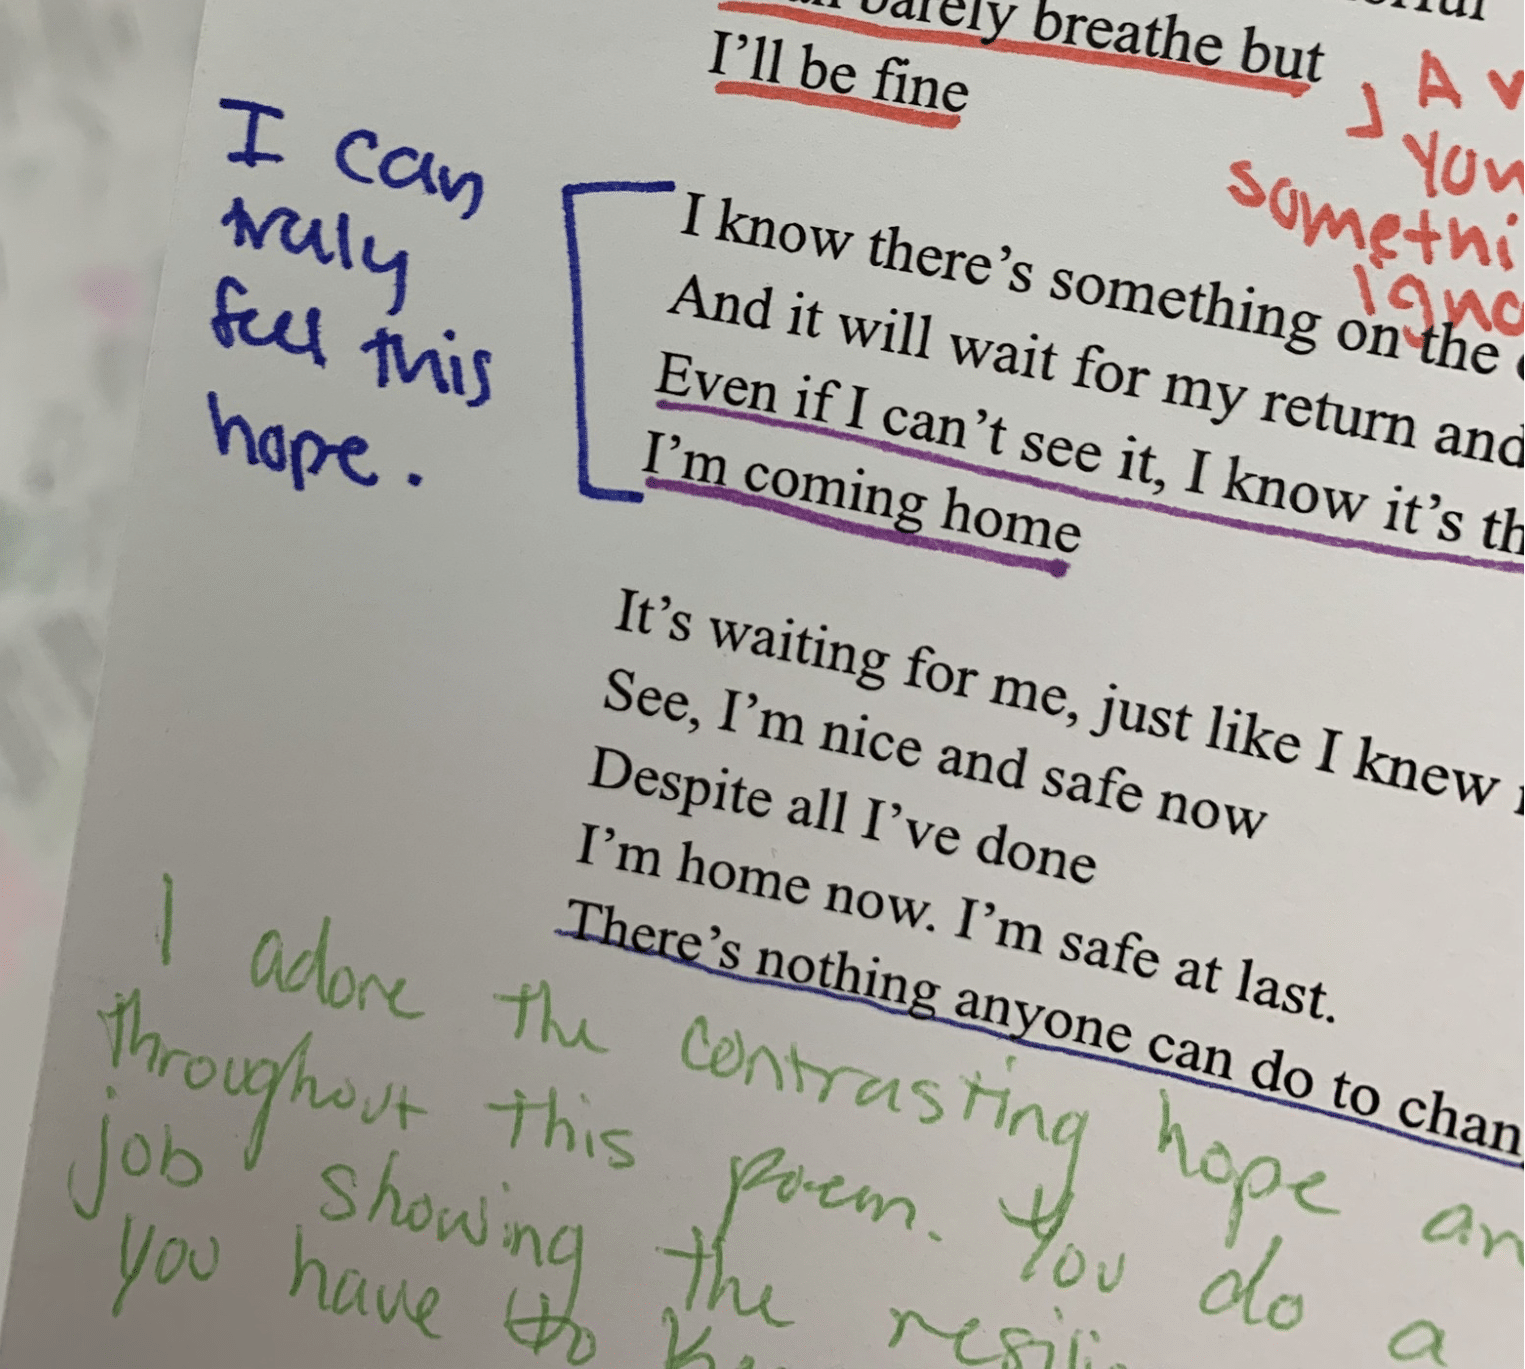 barely breathe but
I'll be fine
A
something
I can
truly
feel this
hope.
I know there's something on the
And it will wait for my return and
Even if I can't see it, I know it's th
I'm coming home
It's waiting for me, just like I knew
See, I'm nice and safe now
Despite all I've done
I'm home now. I'm safe at last.
There's nothing anyone can do to chan
I adore the contrasting hope an
throughout this poem. You do a
job showing the resili
you have to